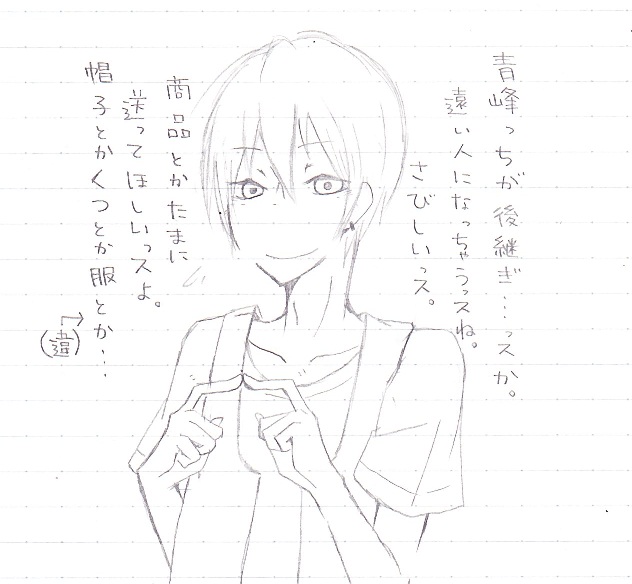 青峰っちが後継ぎ…っスか。
遠い人になっちゃうっスね。
さびしいっス。
商品とかたまに
送ってほしいっスよ。
帽子とかくつとか服とか…
(違)